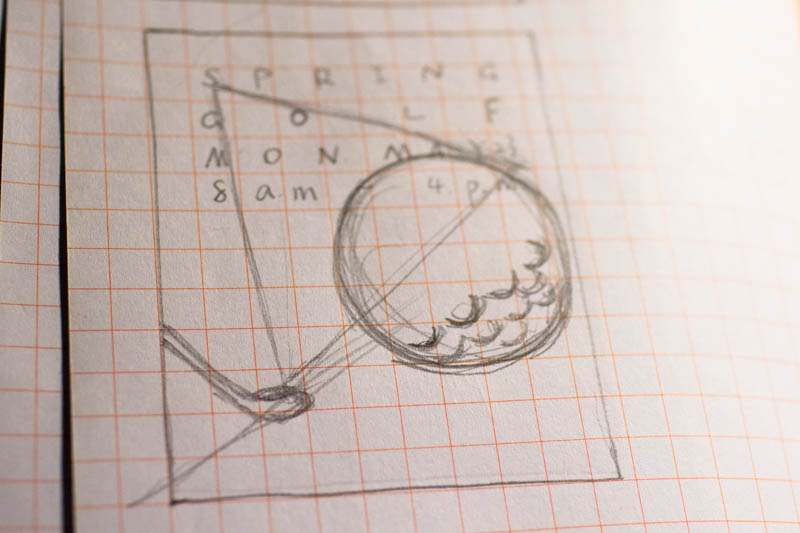 S P R I N G
G O L F
M O N M A
8 a.m 4. p.m